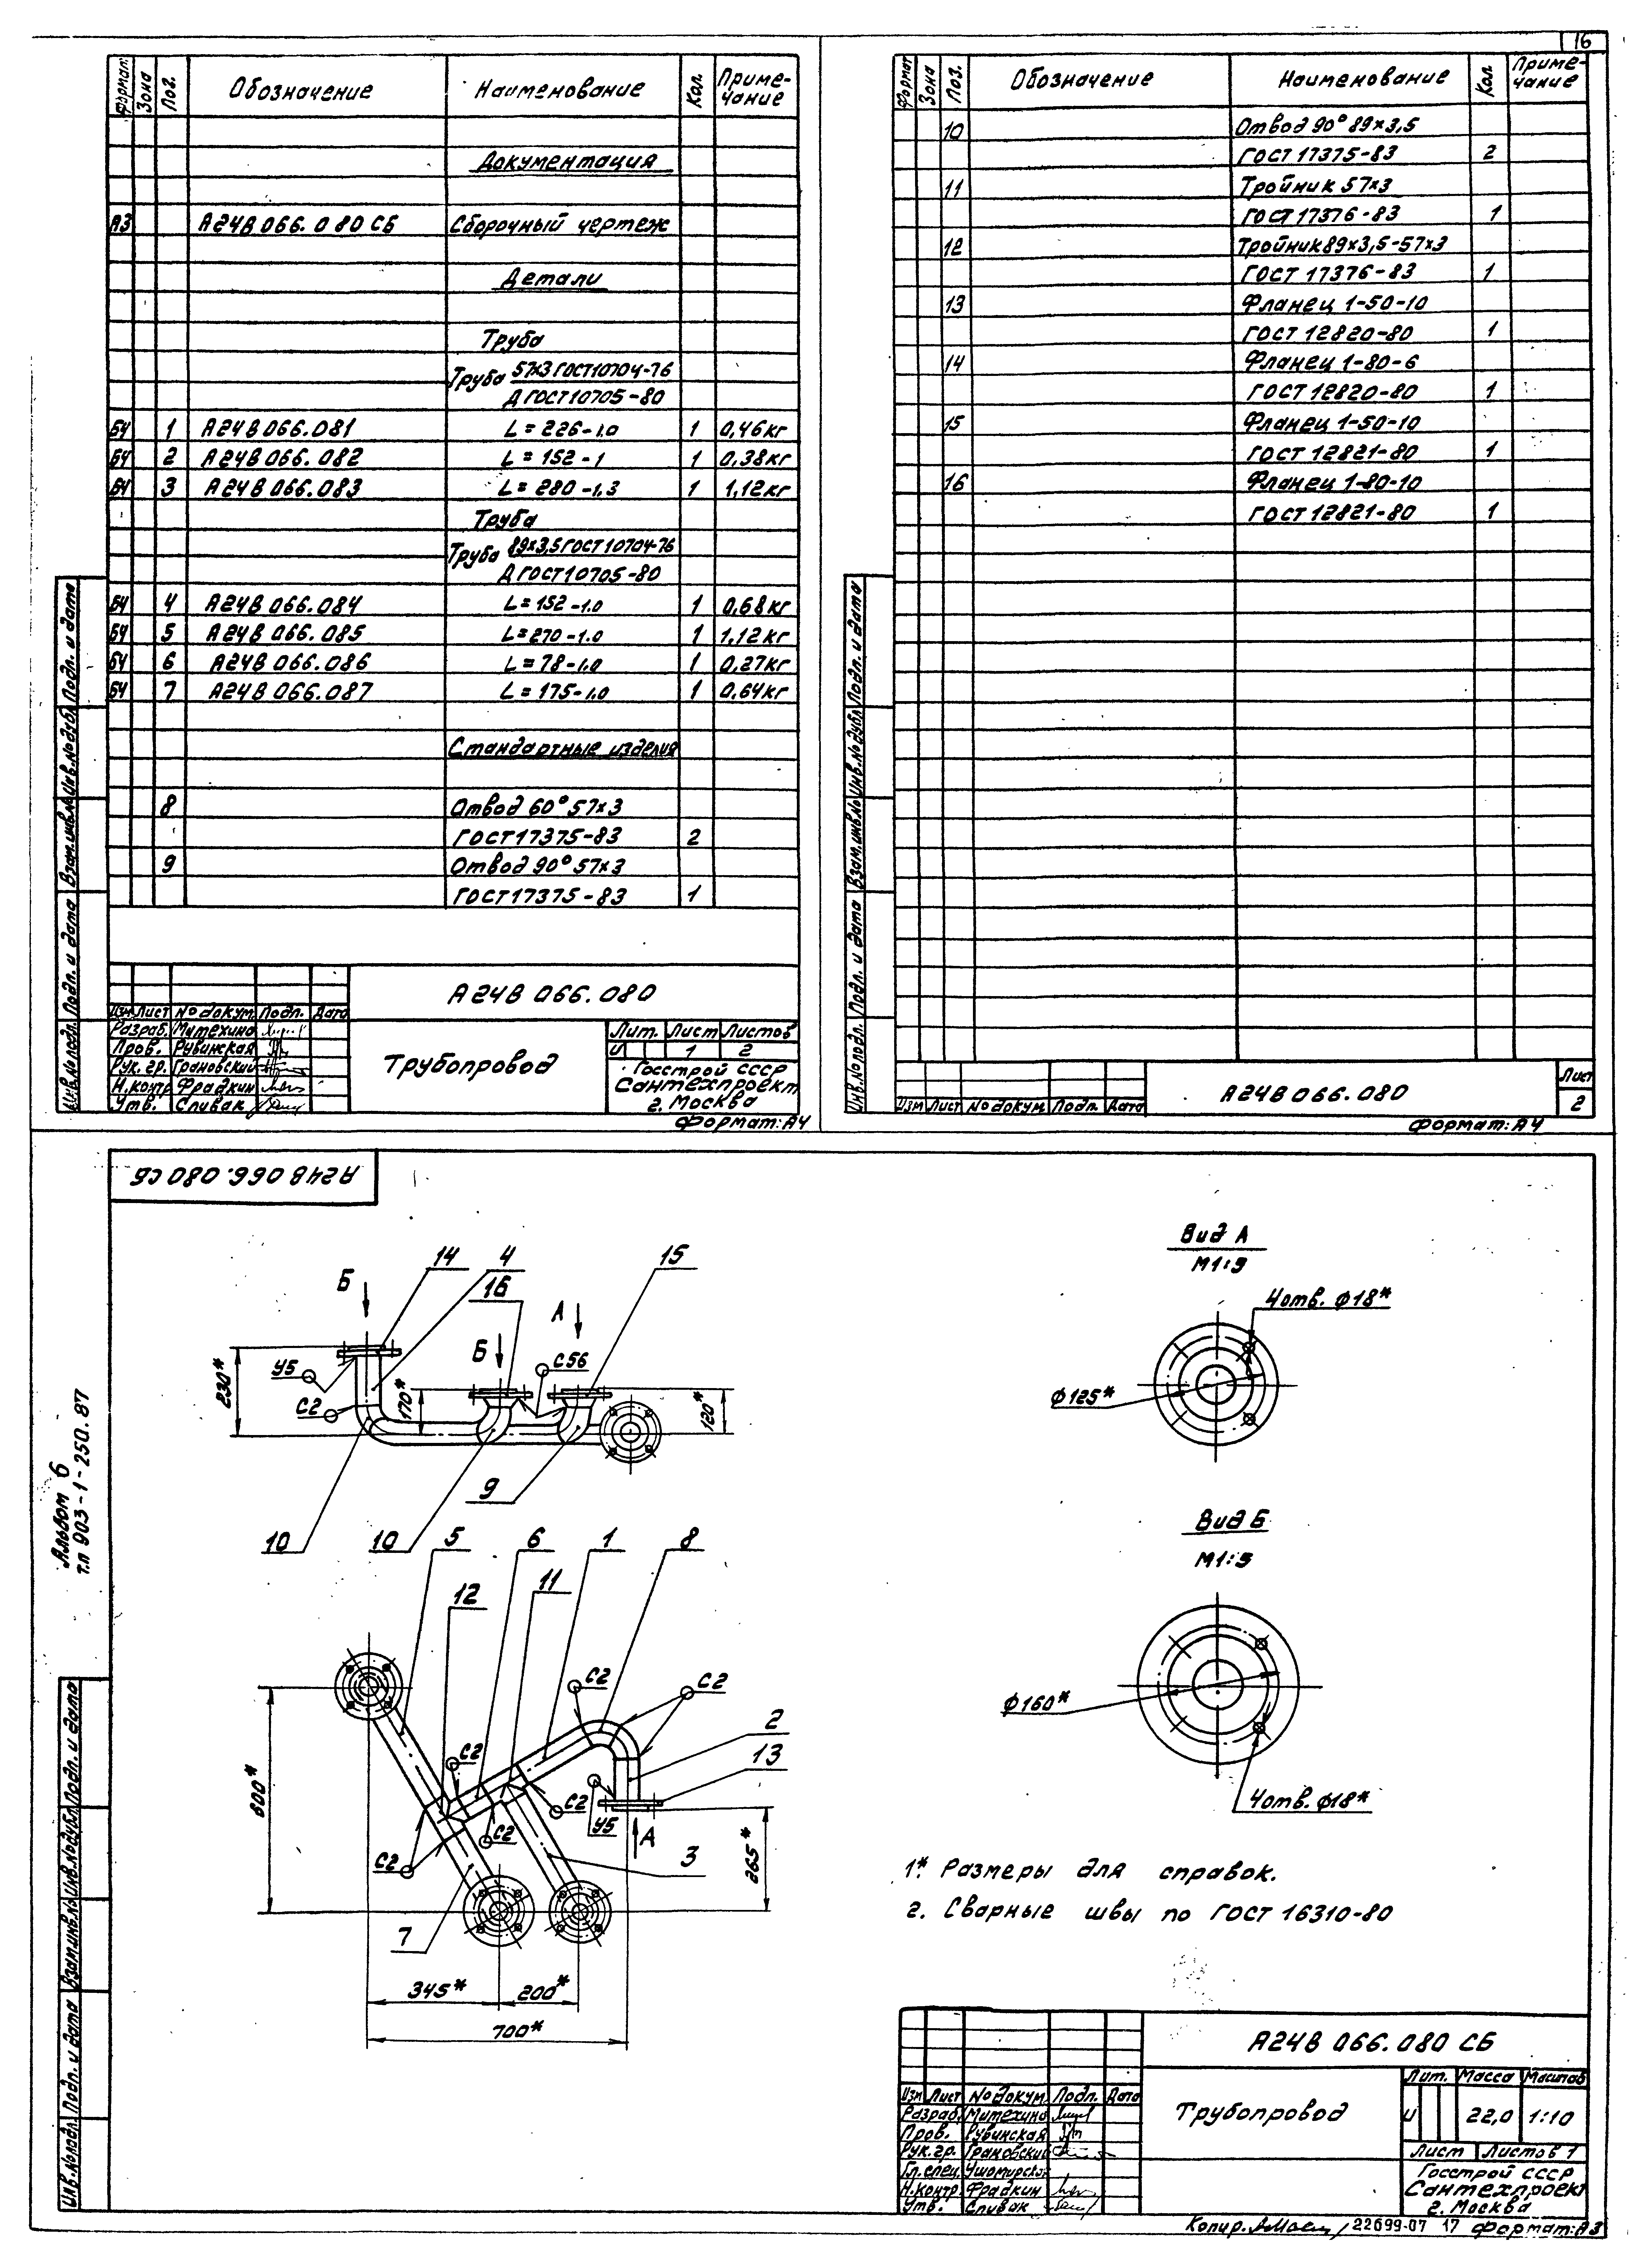 16
Формат Зона Поз. Обозначение Наименование Кол. Приме-чание
Документация
А3 А24В 066.080 СБ Сборочный чертеж
Детали
Труба
Труба 57×3 ГОСТ 10704-76
Д ГОСТ 10705-80
БЧ 1 А24В 066.081 L=226-1.0 1 0,46кг
БЧ 2 А24В 066.082 L=152-1 1 0,38кг
БЧ 3 А24В 066.083 L=280-1,3 1 1,12кг
Труба
Труба 89×3,5 ГОСТ 10704-76
Д ГОСТ 10705-80
БЧ 4 А24В 066.084 L=152-1.0 1 0,68кг
БЧ 5 А24В 066.085 L=270-1.0 1 1,12кг
БЧ 6 А24В 066.086 L=78-1.0 1 0,27кг
БЧ 7 А24В 066.087 L=175-1.0 1 0,64кг
Стандартные изделия
8 Отвод 60° 57×3
ГОСТ 17375-83 2
9 Отвод 90° 57×3
ГОСТ 17375-83 1
А24В 066.080
Изм Лист № докум. Подп. Дата
Разраб. Митехина
Пров. Рубинская
Рук. гр. Грановский
Н.контр Фрадкин
Утв. Спивак
Трубопровод
Лит. Лист Листов
И 1 2
Госстрой СССР
Сантехпроект
г. Москва
Формат: А4
Инв.№подл. Подп. и дата Взам.инв.№ Инв.№дубл. Подп. и дата
Формат Зона Поз. Обозначение Наименование Кол Приме-чание
10 Отвод 90° 89×3,5
ГОСТ 17375-83 2
11 Тройник 57×3
ГОСТ 17376-83 1
12 Тройник 89×3,5-57×3
ГОСТ 17376-83 1
13 Фланец 1-50-10
ГОСТ 12820-80 1
14 Фланец 1-80-6
ГОСТ 12820-80 1
15 Фланец 1-50-10
ГОСТ 12821-80 1
16 Фланец 1-80-10
ГОСТ 12821-80 1
Инв.№подл. Подп. и дата Взам.инв.№ Инв.№дубл. Подп. и дата
Изм Лист № докум. Подп. Дата
А24В 066.080
Лист
2
Формат: А4
А24В 066.080 СБ
Альбом 6
т.п 903-1-250.87
Б
14
4
16
А
15
Б
С56
У5
С2
230*
170*
120*
9
10
10
5
6
1
8
12
11
С2
С2
2
13
С2
С2
С2
С2
У5
А
3
7
600*
265*
345*
200*
700*
Вид А
М1:5
4отв. ф18*
ф125*
Вид Б
М1:5
ф160*
4отв. ф18*
1* Размеры для справок.
2. Сварные швы по ГОСТ 16310-80
Инв.№подл. Подп. и дата Взам.инв.№ Инв.№дубл. Подп. и дата
А24В 066.080 СБ
Изм Лист № докум. Подп. Дата
Разраб. Митехина
Пров. Рубинская
Рук.гр. Грановский
Гл.спец. Ушомирский
Н.контр. Фрадкин
Утв. Спивак
Трубопровод
Лит. Масса Масштаб
И 22,0 1:10
Лист Листов 1
Госстрой СССР
Сантехпроект
г. Москва
Копир. 22699-07 17 Формат: А3